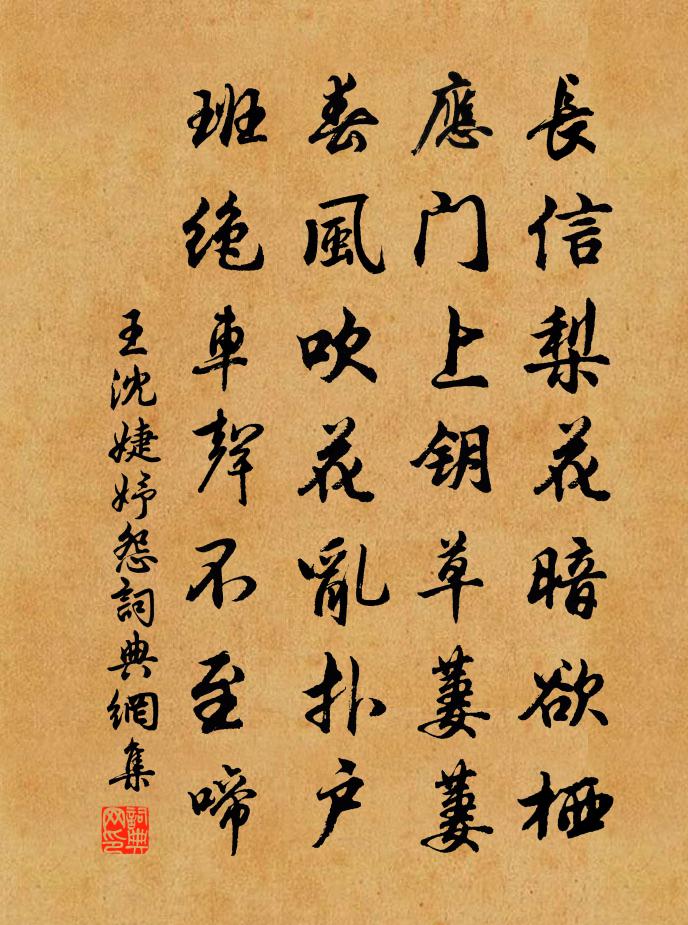 長信梨花暗欲栖
應门上钥草萋萋
春風吹花亂扑户
班绝車聲不至啼
王沈婕妤怨詞典網集
詞典网印